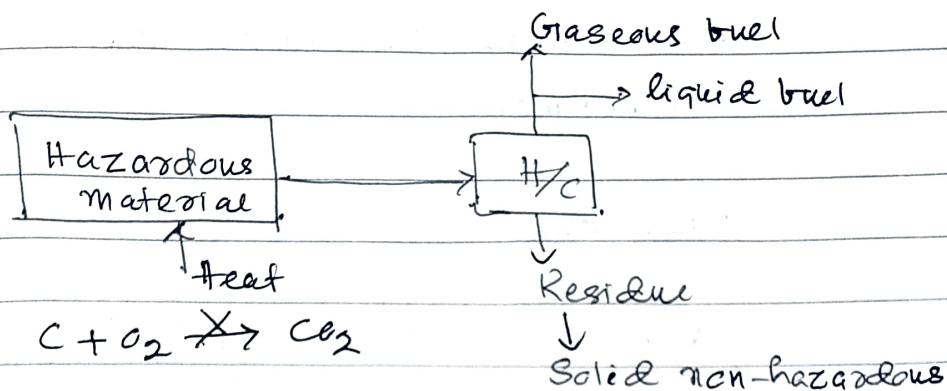 Gaseous fuel
liquid fuel
Hazardous
material
H/C
Heat
Residue
C + O₂ → CO₂
Solid non-hazardous